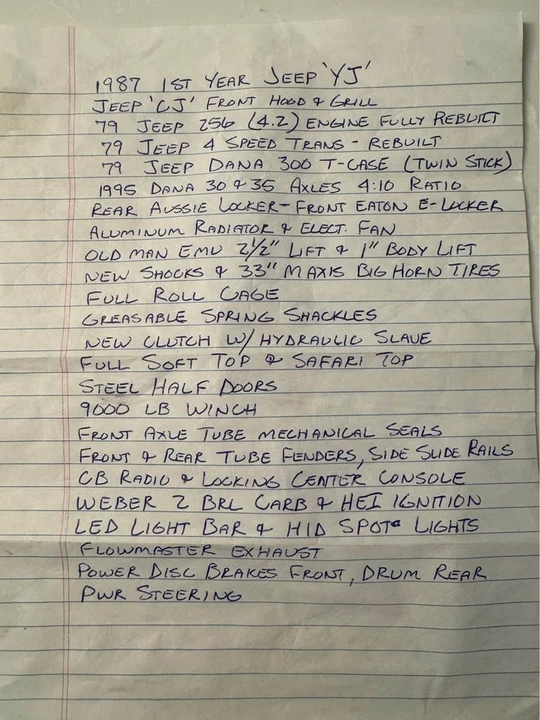 1987 1ST YEAR JEEP 'YJ'
JEEP 'CJ' FRONT HOOD & GRILL
79 JEEP 256 (4.2) ENGINE FULLY REBUILT
79 JEEP 4 SPEED TRANS - REBUILT
79 JEEP DANA 300 T-CASE (TWIN STICK)
1995 DANA 30 & 35 AXLES 4:10 RATIO
REAR AUSSIE LOCKER - FRONT EATON E-LOCKER
ALUMINUM RADIATOR & ELECT. FAN
OLD MAN EMU 2½" LIFT & 1" BODY LIFT
NEW SHOCKS & 33" MAXIS BIG HORN TIRES
FULL ROLL CAGE
GREASABLE SPRING SHACKLES
NEW CLUTCH W/ HYDRAULIC SLAVE
FULL SOFT TOP & SAFARI TOP
STEEL HALF DOORS
9000 LB WINCH
FRONT AXLE TUBE MECHANICAL SEALS
FRONT & REAR TUBE FENDERS, SIDE SLIDE RAILS
CB RADIO & LOCKING CENTER CONSOLE
WEBER 2 BRL CARB & HEI IGNITION
LED LIGHT BAR & HID SPOT LIGHTS
FLOWMASTER EXHAUST
POWER DISC BRAKES FRONT, DRUM REAR
PWR STEERING